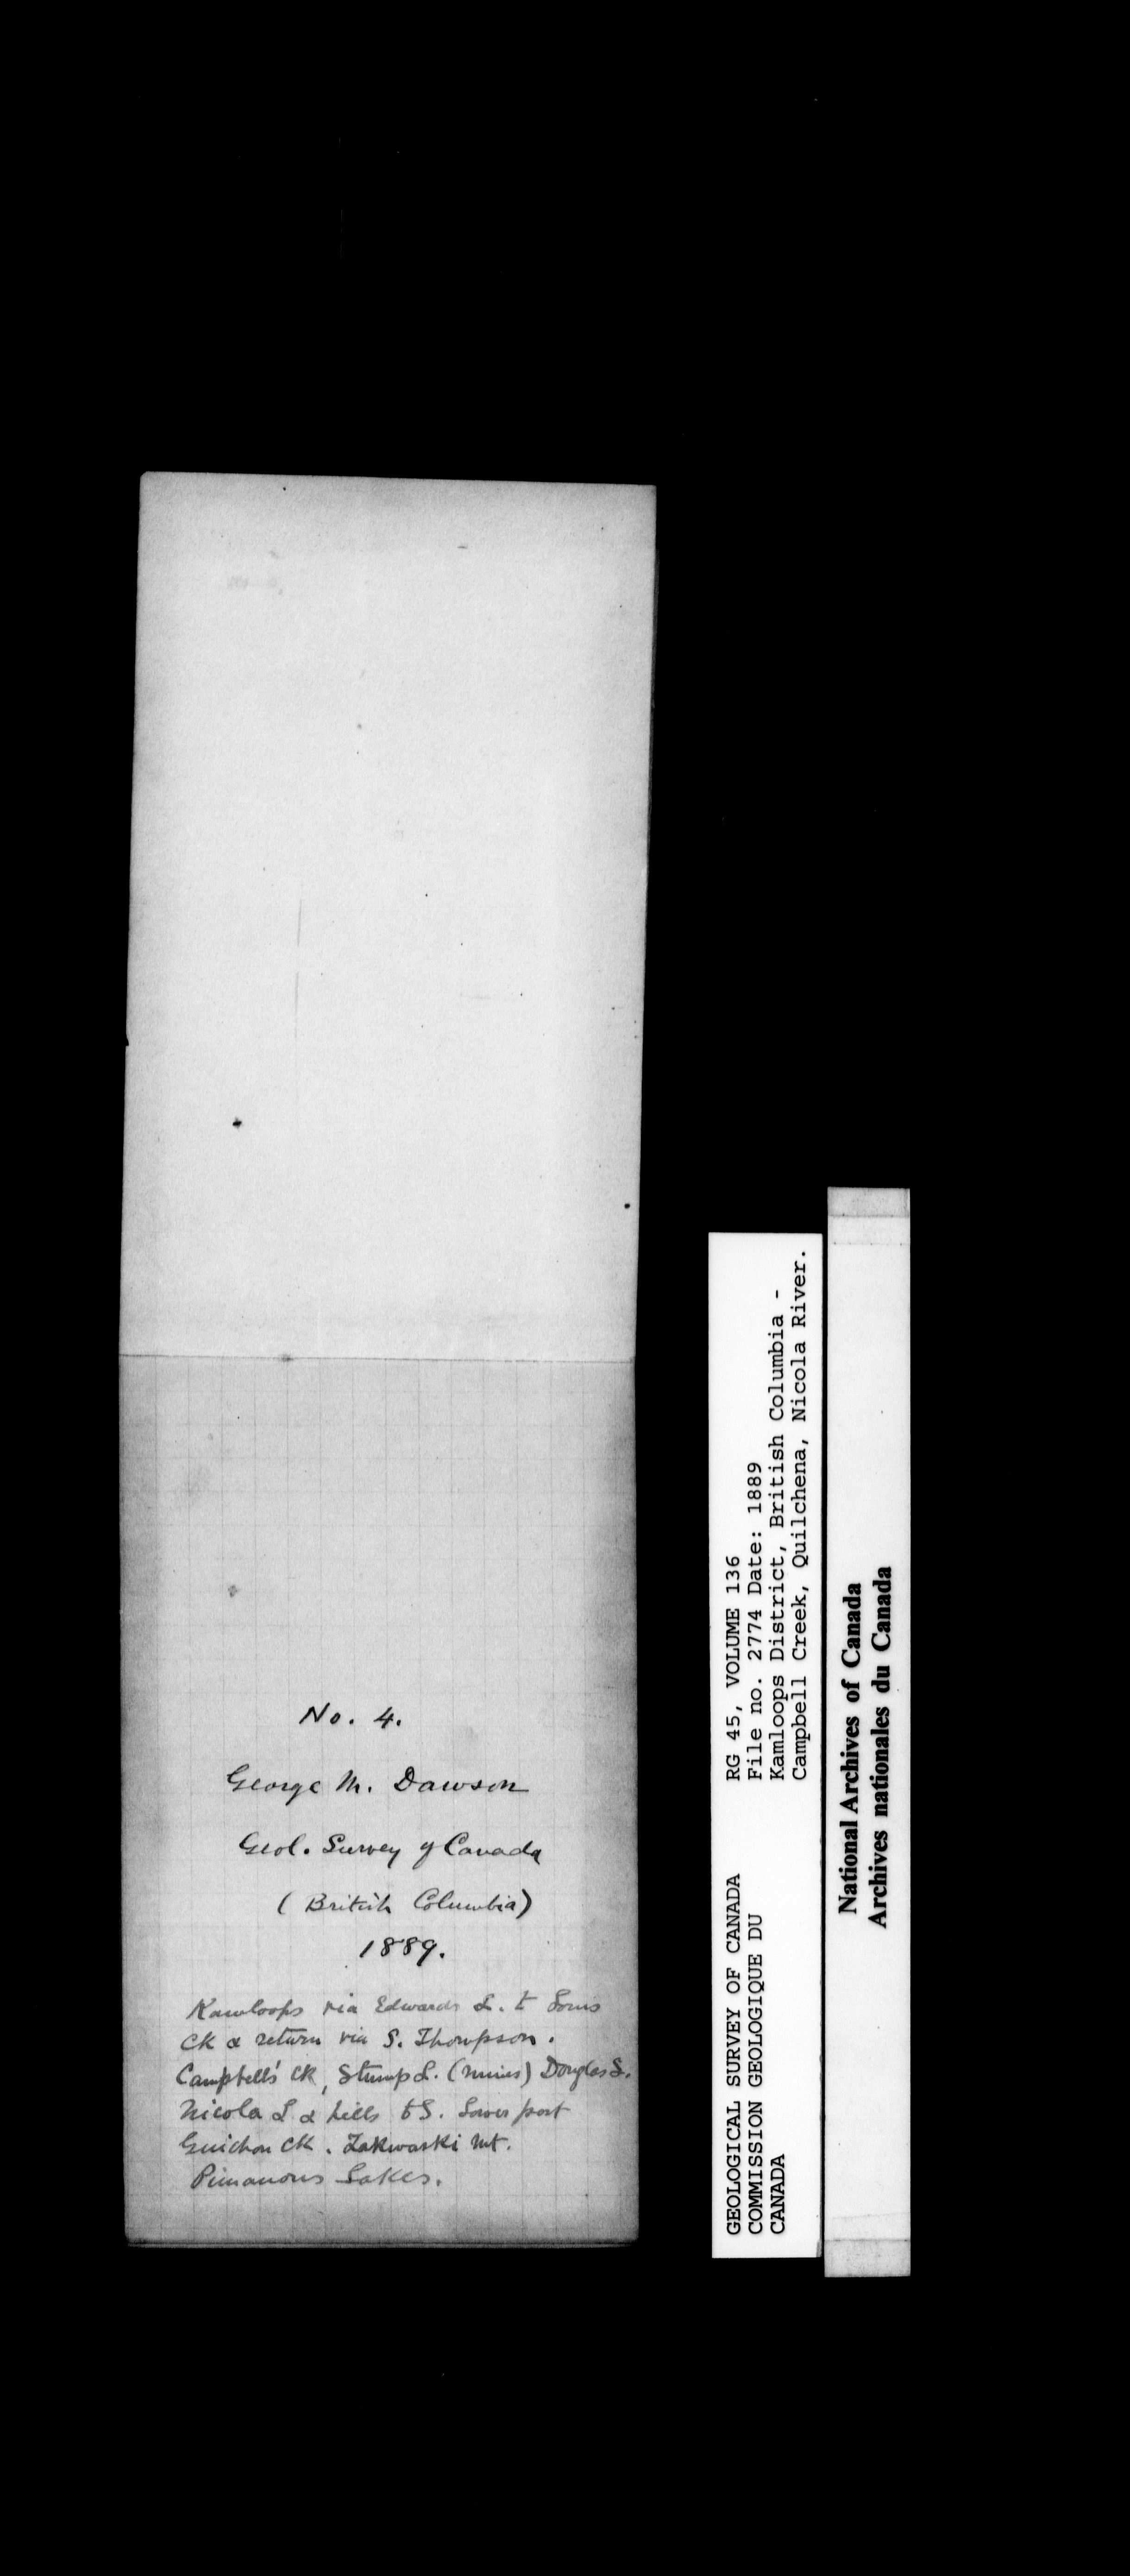 No. 4.
George M. Dawson
Geol. Survey of Canada
(British Columbia)
1889.
Kamloops via Edwards L. to Louis
Ck & return via S. Thompson.
Campbells' Ck, Stump L. (mines) Douglas L.
Nicola L & hills to S. Lower part
Guichon Ck. Zakwaski Mt.
Pimanous Lakes.
GEOLOGICAL SURVEY OF CANADA
COMMISSION GEOLOGIQUE DU
CANADA
RG 45, VOLUME 136
File no. 2774 Date: 1889
Kamloops District, British Columbia -
Campbell Creek, Quilchena, Nicola River.
National Archives of Canada
Archives nationales du Canada